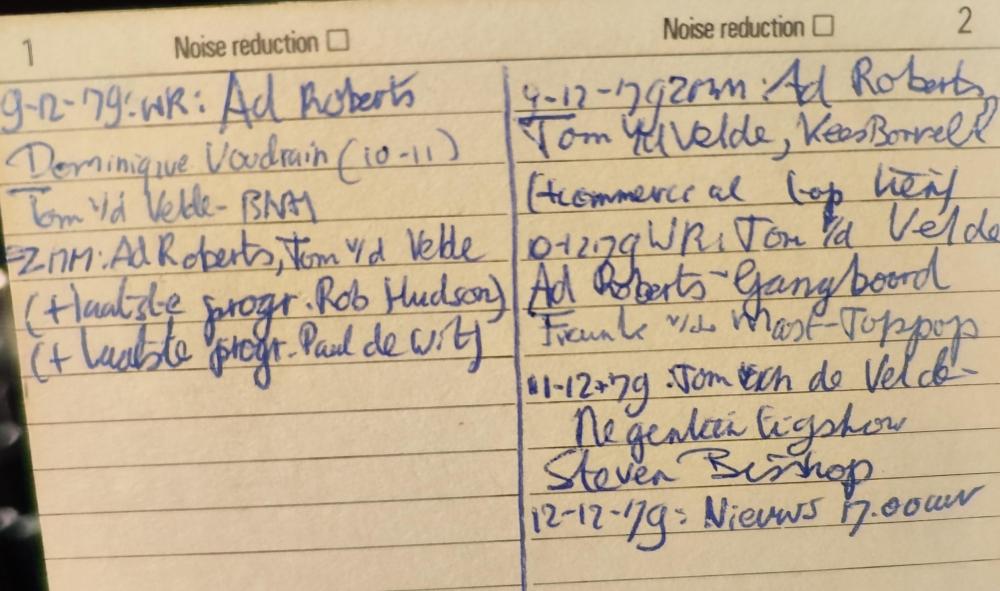 1 Noise reduction
9-12-79: WR: Ad Roberts
Dominique Voudrain (10-11)
Tom v/d Velde - BNM
ZNM: Ad Roberts, Tom v/d Velde
(+ laatste progr. Rob Hudson)
(+ laatste progr. Paul de Wit)
Noise reduction 2
9-12-79 ZNM: Ad Roberts,
Tom v/d Velde, Kees Borrell
(+commercial
10-12-79 WR: Tom v/d Velde
Ad Roberts - Gangboord
Frank v/d Mast - Toppop
11-12-79 Tom van de Velde -
Negentien tigshow
Steven Bisshop
12-12-79: Nieuws 17.00 uur